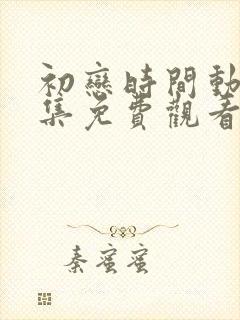 初戀時間動
集免費觀看
秦蜜蜜